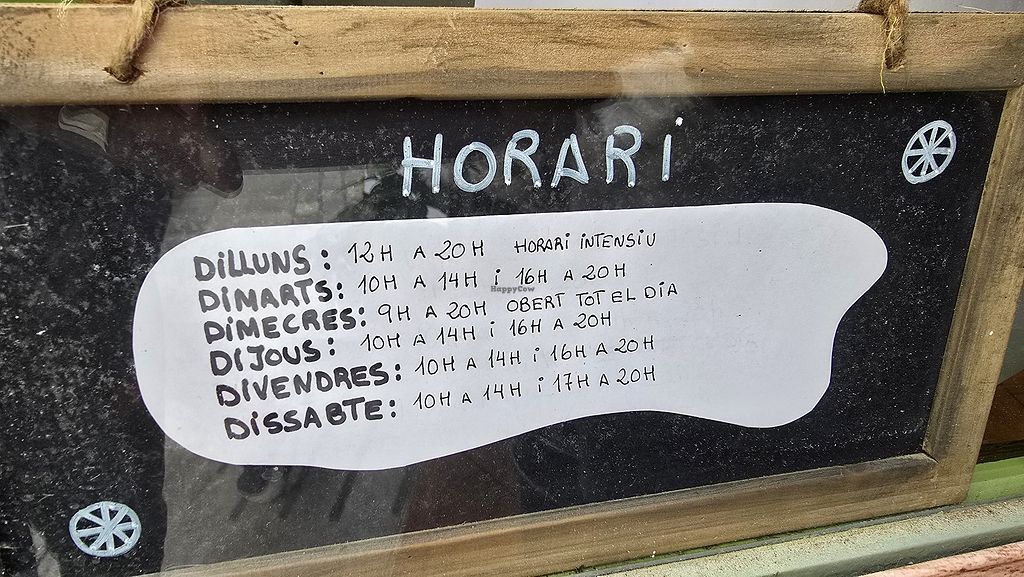 HORARI
DILLUNS: 12H A 20H HORARI INTENSIU
DIMARTS: 10H A 14H i 16H A 20H
HappyCow
DIMECRES: 9H A 20H OBERT TOT EL DIA
DIJOUS: 10H A 14H i 16H A 20H
DIVENDRES: 10H A 14H i 16H A 20H
DISSABTE: 10H A 14H i 17H A 20H